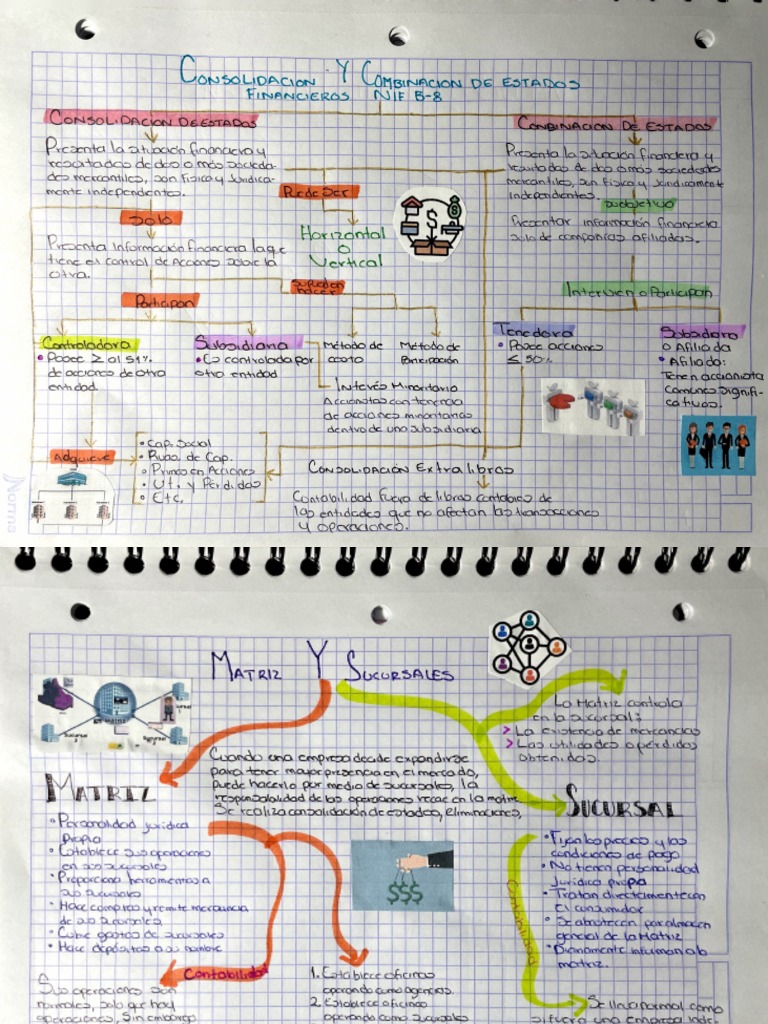 CONSOLIDACION Y COMBINACION DE ESTADOS
FINANCIEROS NIF B-8
CONSOLIDACION DE ESTADOS
Presenta la situación financiera y
resultados de dos o más socieda-
des mercantiles, son Física y Jurídica-
mente independientes.
Solo
Presenta Información financiera la que
tiene el control de Acciones sobre la
otra.
Participan
Controladora
• Posee ≥ al 51%
de acciones de otra
entidad.
Subsidiaria
• Es controlada por
otra entidad
Adquiere
• Cap. Social
• Util. y Perdidas
• Etc.
Puede Ser
Horizontal
o
Vertical
Método de
costo
Método de
Participación
Interés Minoritario
Accionistas con tenencia
de acciones minoritarias
dentro de una subsidiaria
CONSOLIDACIÓN Extra libros
Contabilidad fuera de libros contables de
las entidades que no afectan las transacciones
y operaciones.
COMBINACION DE ESTADOS
Presenta la situación financiera y
resultados de dos o más sociedades
mercantiles, son Física y Jurídicamente
independientes.
Su objetivo
Presentar información financiera
solo de compañías afiliadas.
Intervien o Participan
Tenedora
• Posee acciones
≤ 50%
Subsidiaria
o Afiliada
• Afiliada:
Tenen accionista
comunes signifi-
cativos.
Norma
MATRIZ Y SUCURSALES
La Matriz controla
en la sucursal:
> La existencia de mercancias
> Las utilidades o perdidas
obtenidas.
Cuando una empresa decide expandirse
para tener mayor presencia en el mercado,
puede hacerlo por medio de sucursales, la
responsabilidad de las operaciones recae en la matriz
Se realiza consolidación de estados, eliminaciones,
MATRIZ
• Personalidad jurídica
Propia
• Establece sus operaciones
en sus sucursales
• Proporciona herramientas a
sus sucursales
• Hace compras y remite mercancia
de sus sucursales
• Cubre gastos de sucursales
• Hace depósitos a su nombre
Contabilidad
Sus operaciones son
normales, solo que hay
operaciones, Sin embargo
1. Establece oficinas
operando como agencias.
2. Establece oficinas
operando como sucursales
SUCURSAL
• Fijan los precios y las
condiciones de pago
• No tienen personalidad
Jurídica propia
• Tratan directamente con
el consumidor
• Se abastecen por almacén
general de la Matriz
• Diariamente informan a la
matriz.
Contabilidad
Se lleva normal como
si fuera una empresa inde